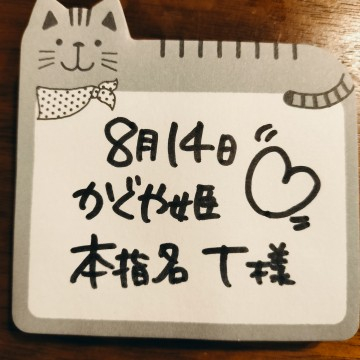 8月14日
かぐや姫
本指名 T様